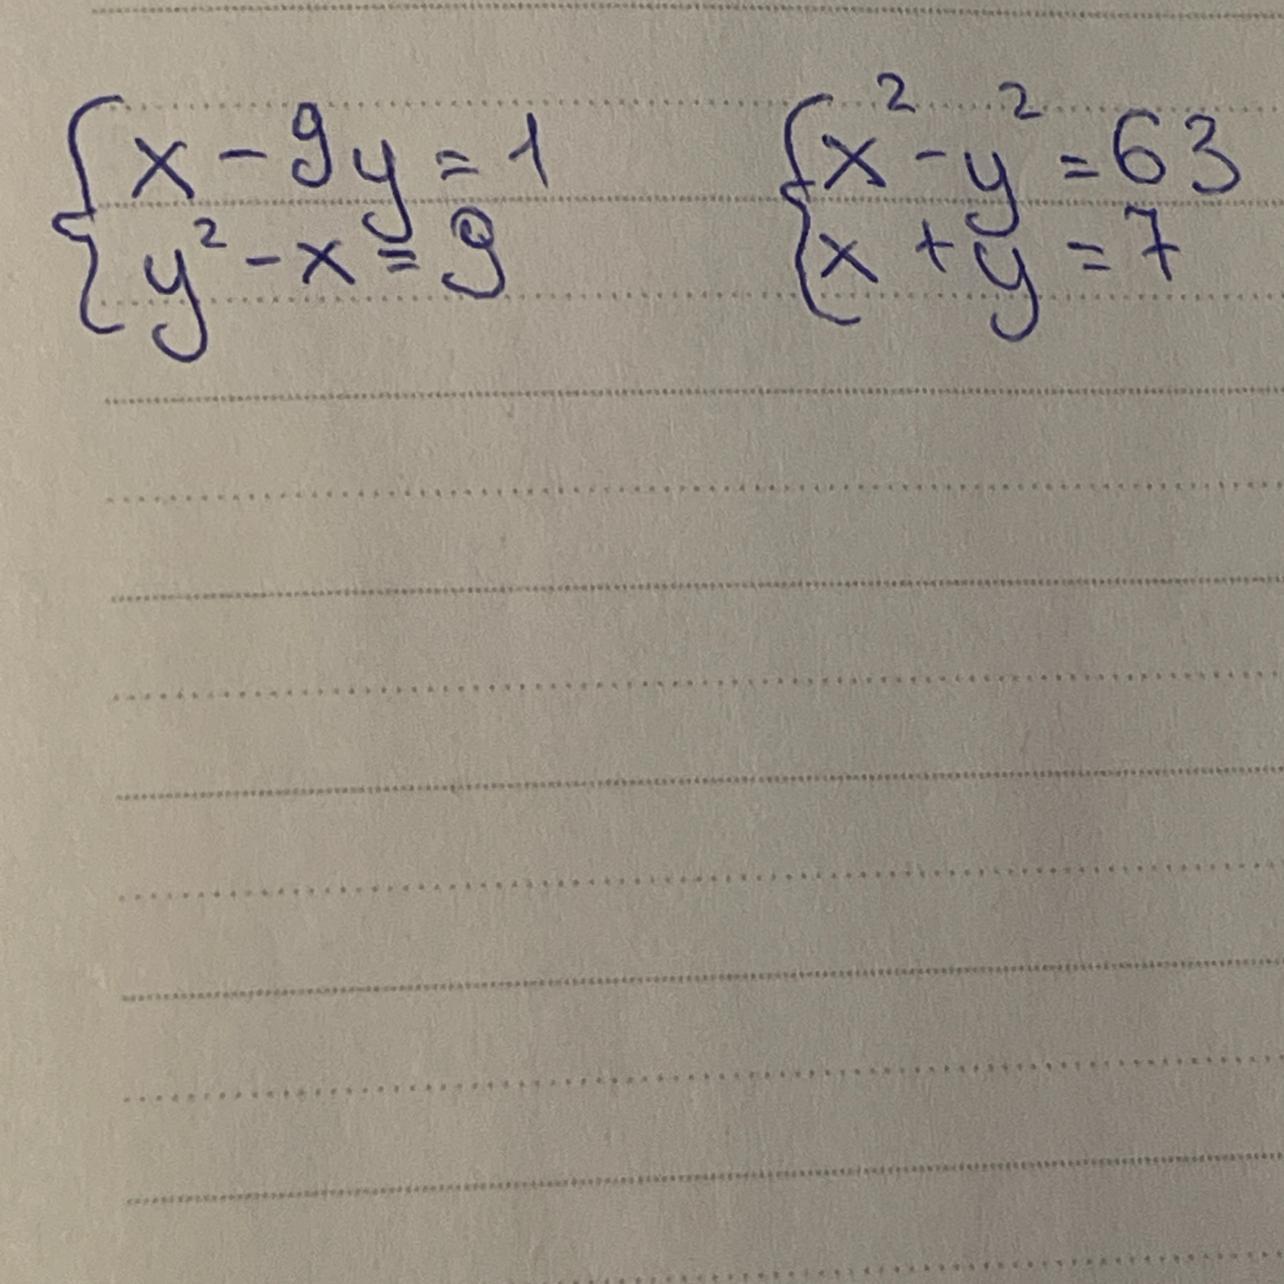 {x - 9y = 1
y² - x = 9
{x² - y² = 63
x + y = 7